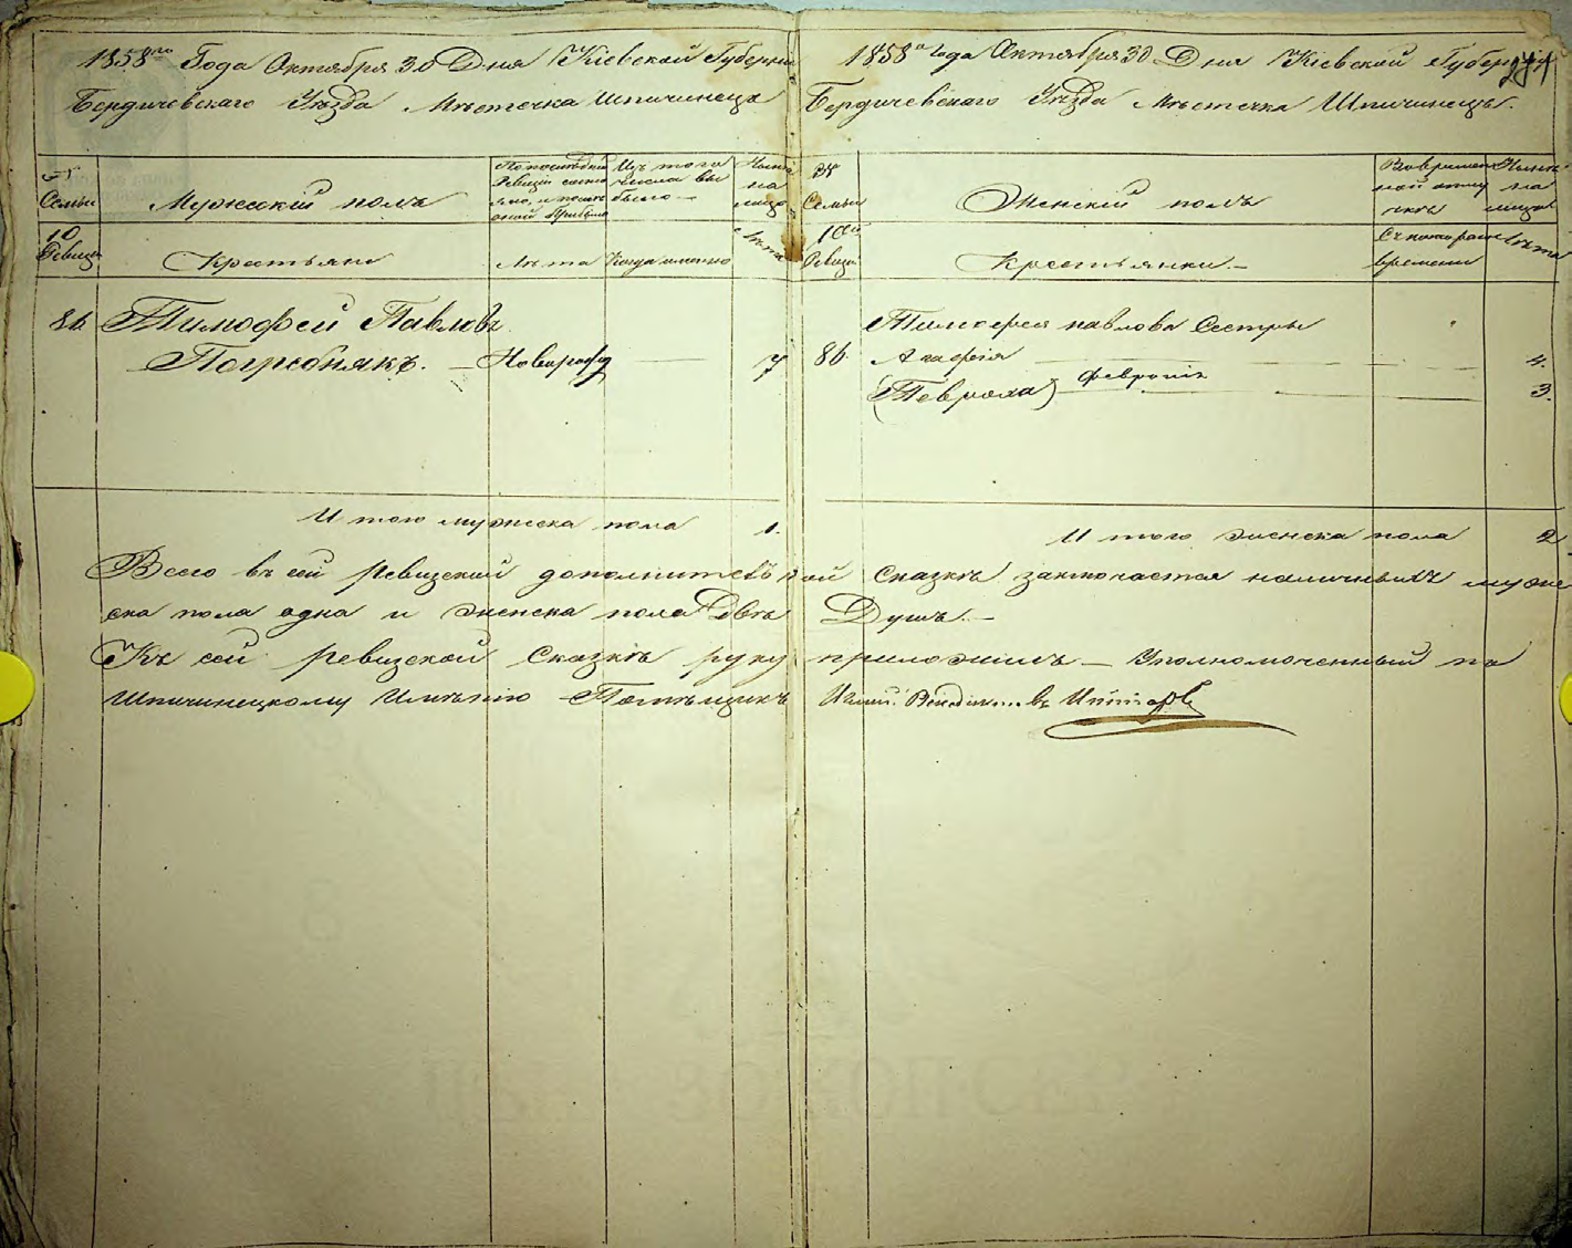 1858го Года Октября 30 Дня Кіевской Губерніи
Бердичевскаго Уѣзда Мѣстечка Шпичинецъ
№ Семьи
Мужескій полъ
По послѣдней Ревизіи состояло, и послѣ оной прибыло
Изъ того числа выбыло
Нынѣ на лицо
10 Ревизіи
Крестьяне
Лѣта
Когда именно
Лѣта
86 Тимофей Павловъ
Погребнякъ. 7
И того мужеска пола 1.
1858го Года Октября 30 Дня Кіевской Губерніи
Бердичевскаго Уѣзда Мѣстечка Шпичинецъ.
№ Семьи
Женскій полъ
Во временной отлучкѣ
Нынѣ на лицо
10й Ревизіи
Крестьянки
Съ котораго времени
Лѣта
Тимофея павлова Сестры
86. Агафія 4.
Феврония 3.
И того женска пола 2
Всего въ сей ревизской дополнительной Сказкѣ заключается наличныхъ муже
ска пола одна и женска пола Двѣ Душъ.
Къ сей ревизской Сказкѣ руку приложилъ — Уполномоченный по
Шпичинецкому Имѣнію Помѣщикъ